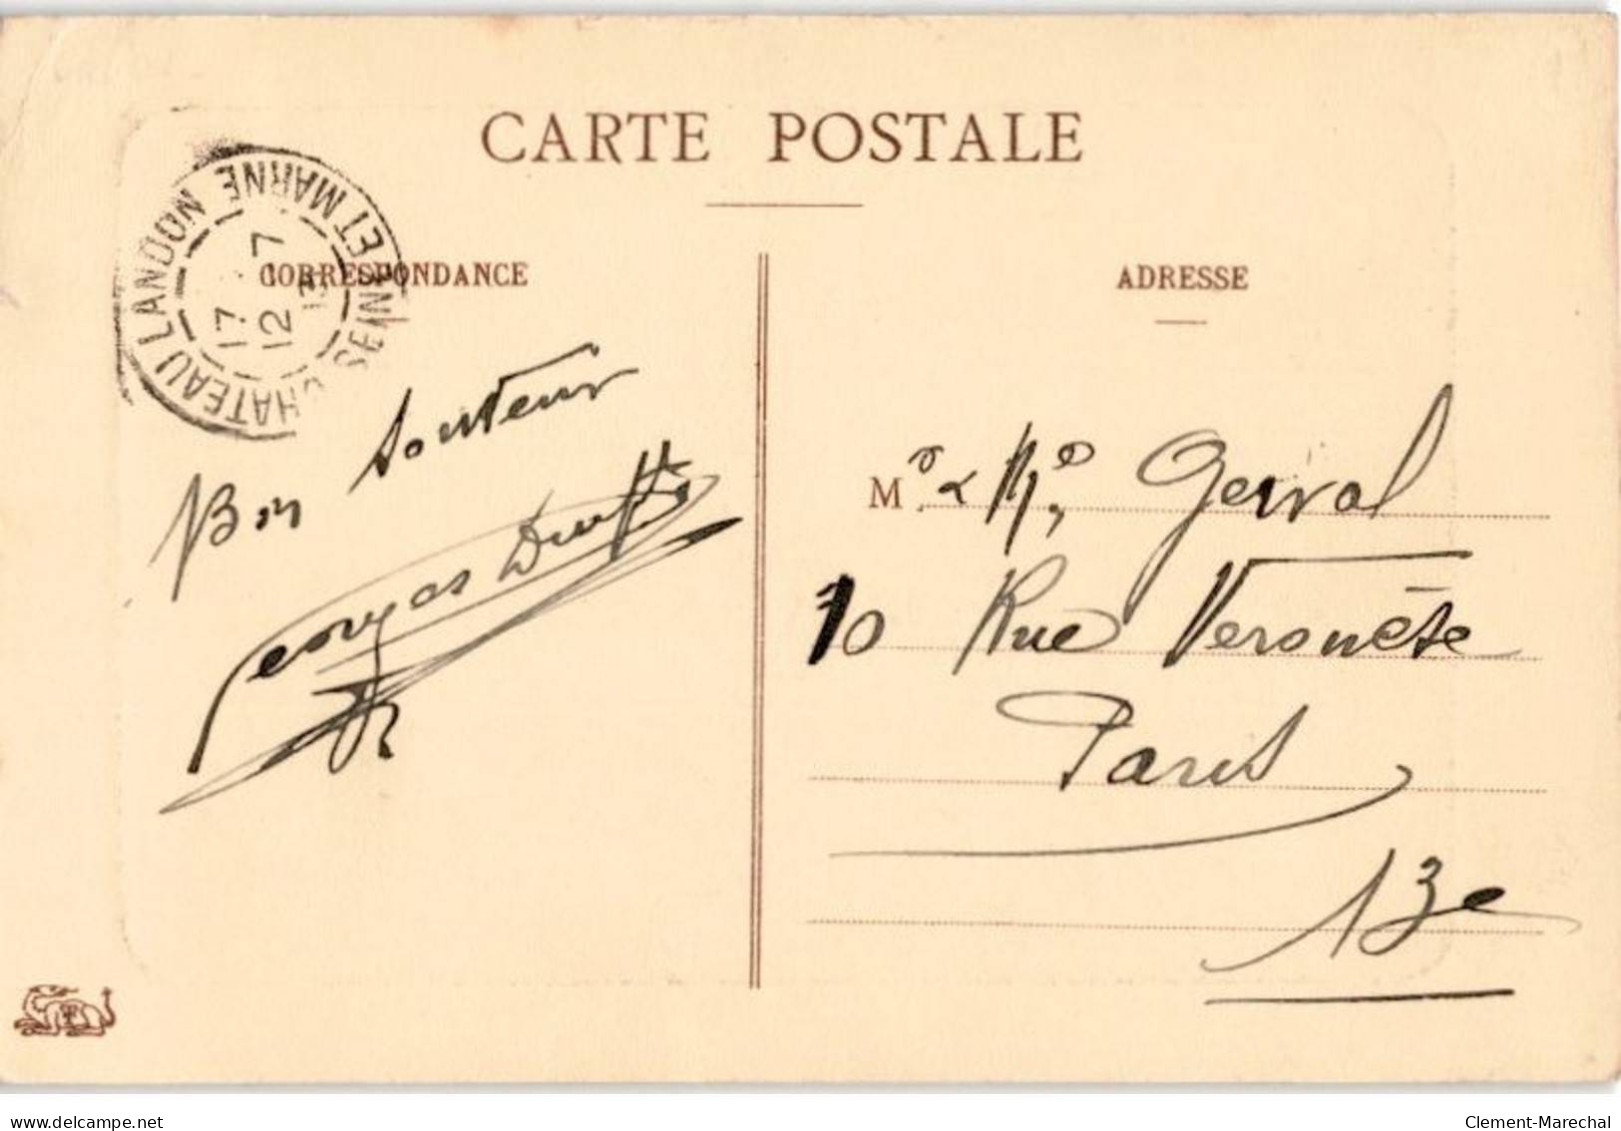 CARTE POSTALE
CORRESPONDANCE
ADRESSE
CHATEAU LANDON SEINE ET MARNE
17 - 7
12
13
Bon souvenir
Georges
M. & Me Gerval
10 Rue Veronèse
Paris
13e
www.delcampe.net
Clement-Marechal